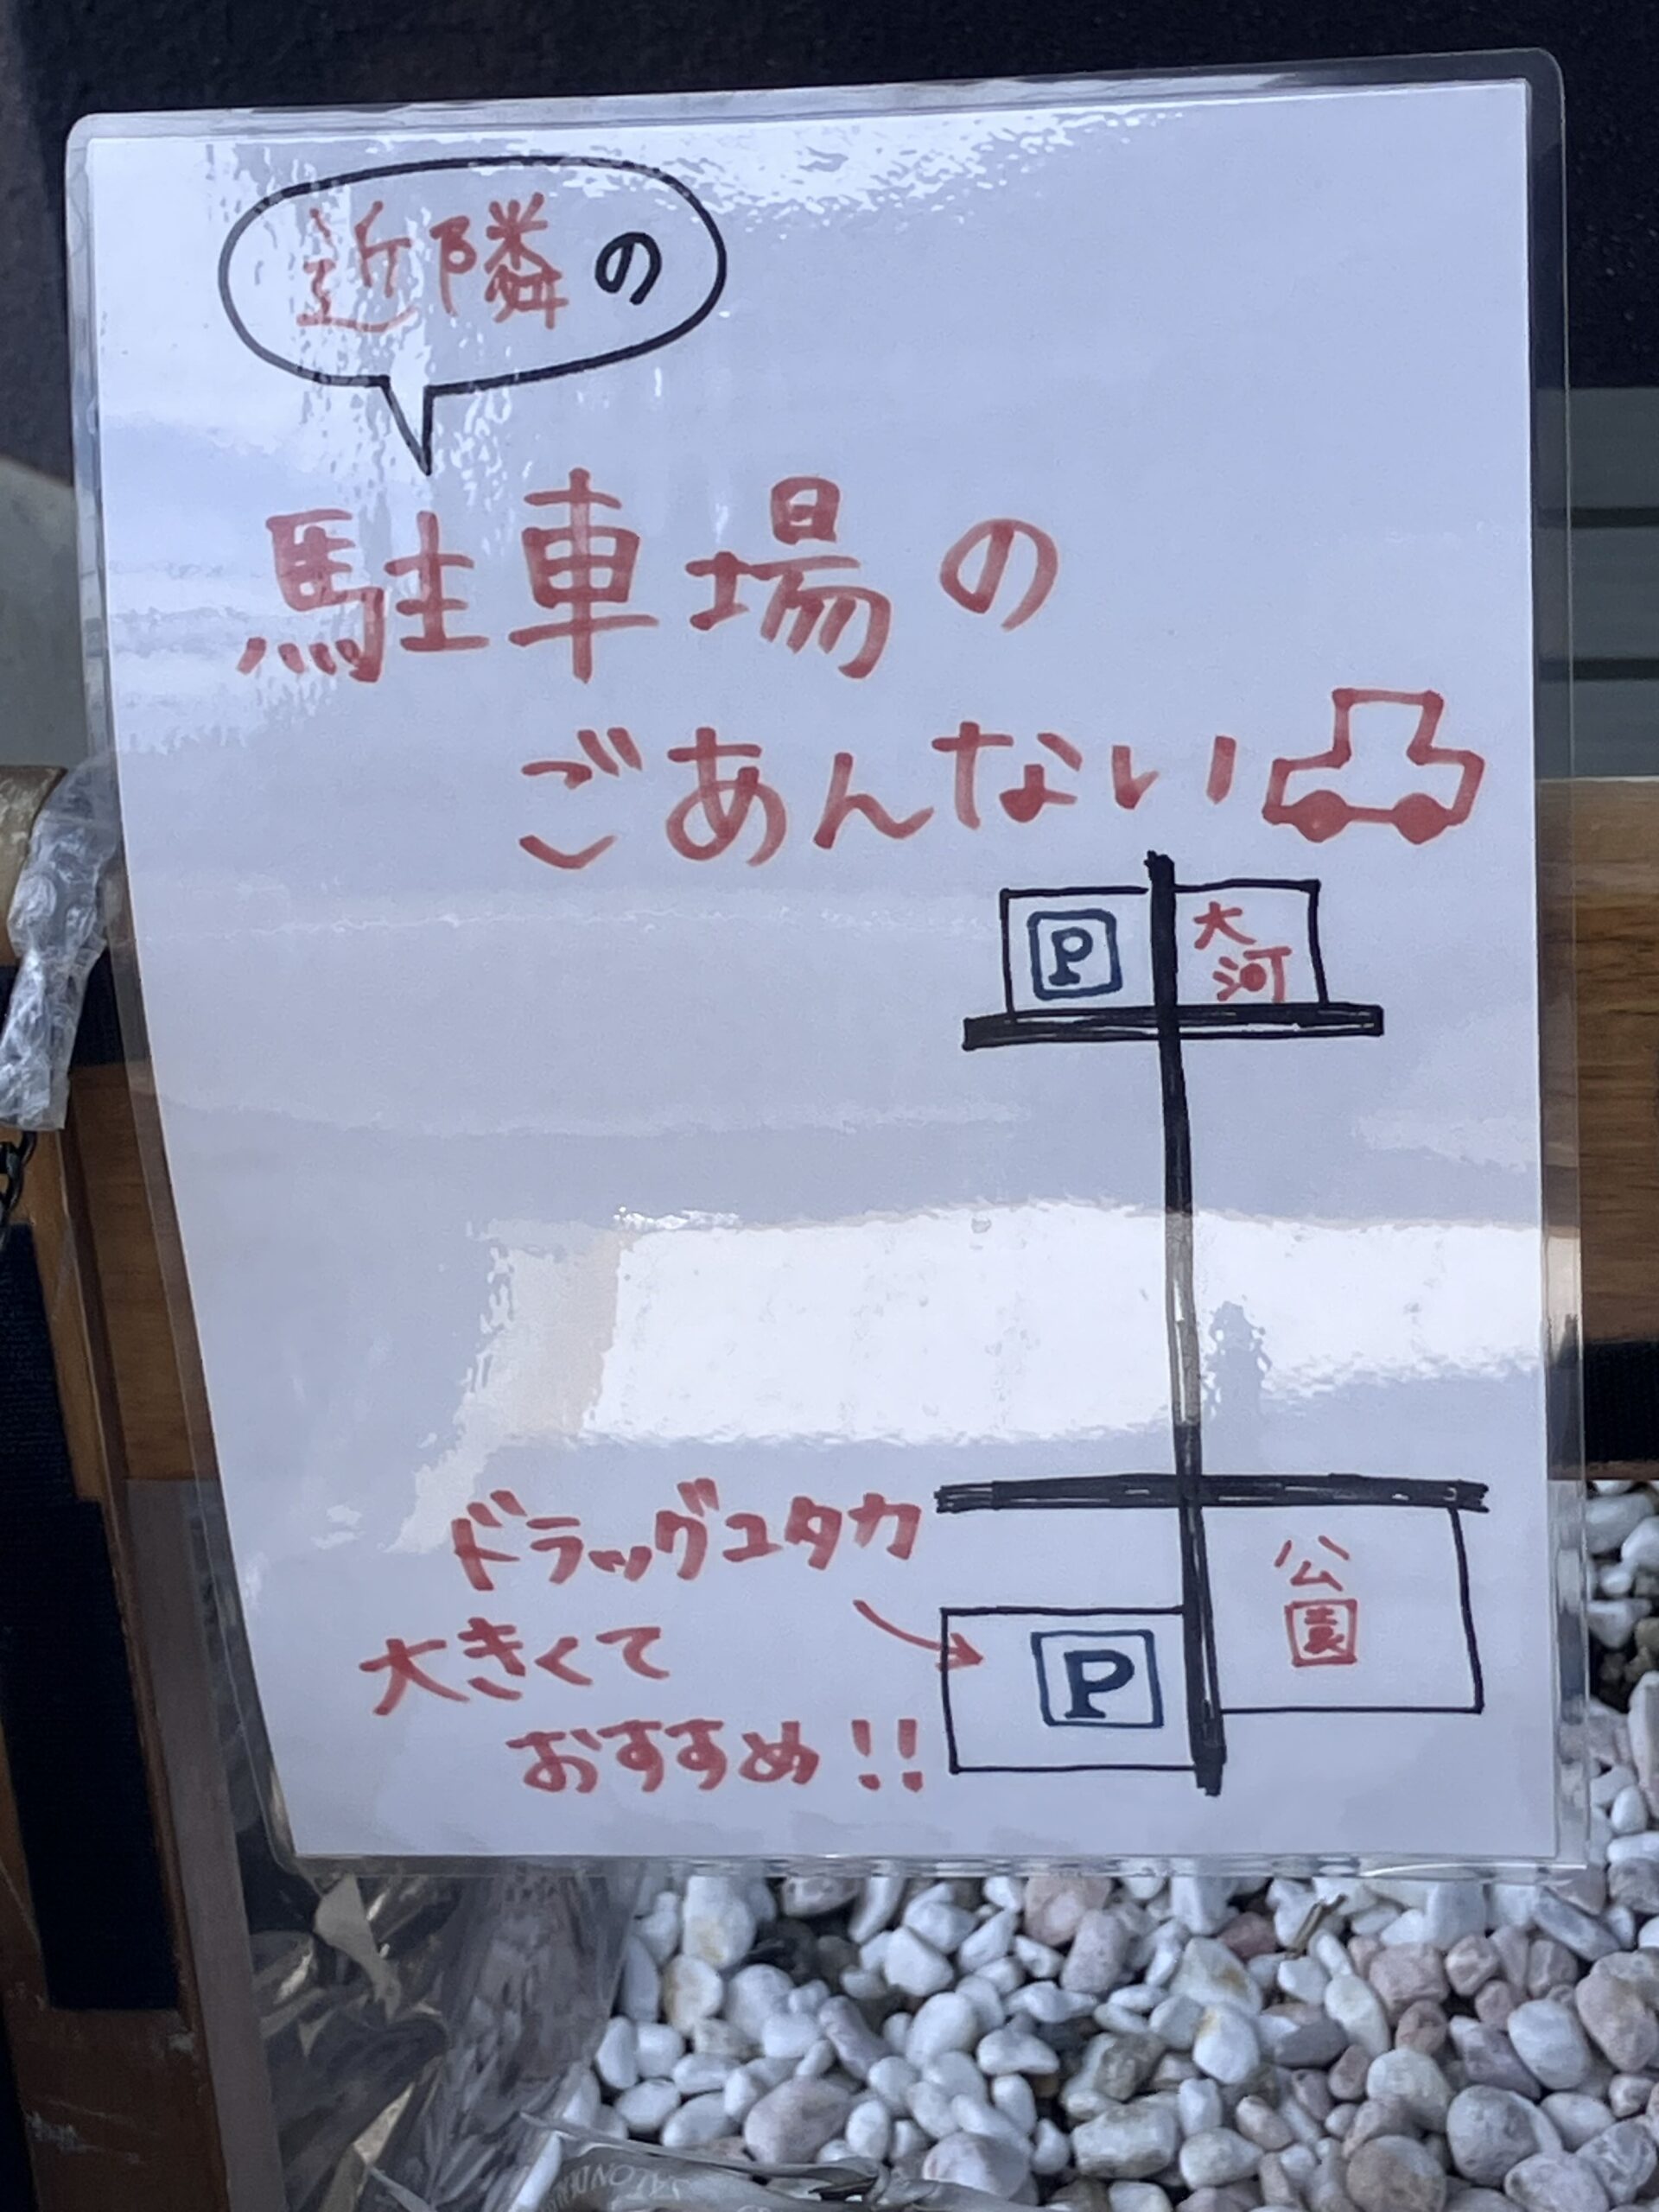 近隣の
駐車場の
ごあんない
P
大
河
ドラッグユタカ
大きくて
おすすめ!!
P
公
園